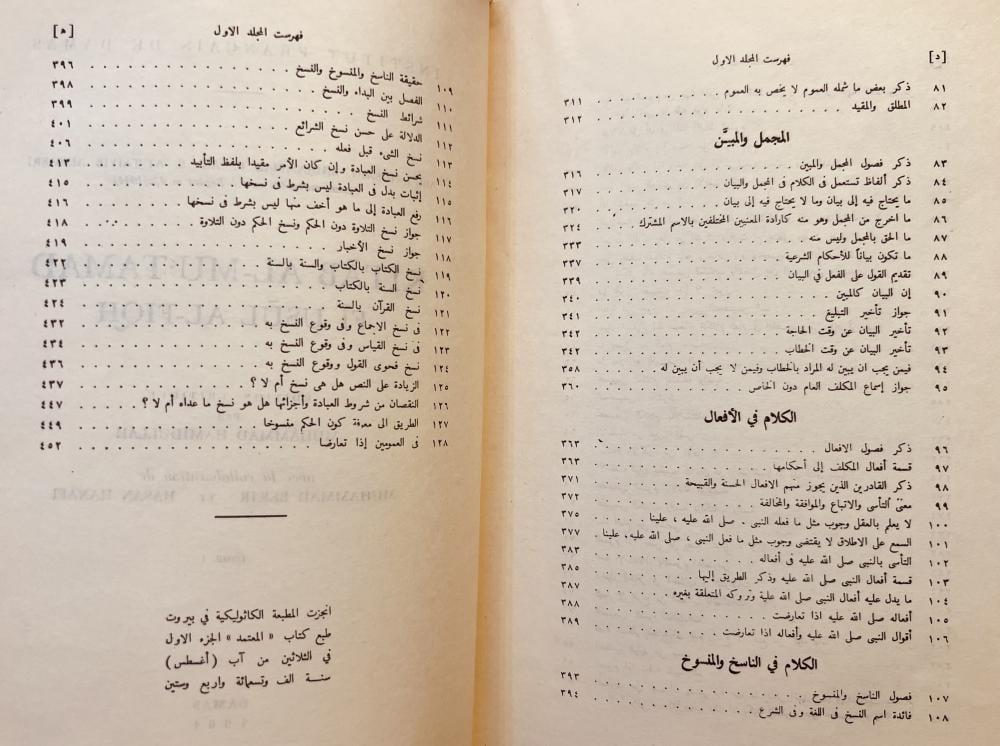 [د] فهرست المجلد الاول
٨١ ذكر بعض ما شمله العموم لا يخص به العموم . . . ٣١١
٨٢ المطلق والمقيد . . . ٣١٢
المجمل والمبيَّن
٨٣ ذكر فصول المجمل والمبين . . . ٣١٦
٨٤ ذكر ألفاظ تستعمل فى الكلام فى المجمل والبيان . . . ٣١٧
٨٥ ما يحتاج فيه إلى بيان وما لا يحتاج فيه إلى بيان . . . ٣٢٠
٨٦ ما اخرج من المجمل وهو منه كارادة المعنيين المختلفين بالاسم المشترك . ٣٢٤
٨٧ ما الحق بالمجمل وليس منه . . . ٣٣٣
٨٨ ما تكون بياناً للأحكام الشرعية . . . ٣٣٧
٨٩ تقديم القول على الفعل في البيان . . . ٣٣٩
٩٠ إن البيان كالمبين . . . ٣٤٠
٩١ جواز تأخير التبليغ . . . ٣٤١
٩٢ تأخير البيان عن وقت الحاجة . . . ٣٤٢
٩٣ تأخير البيان عن وقت الخطاب . . . ٣٤٢
٩٤ فيمن يجب ان يبين له المراد بالخطاب وفيمن لا يجب أن يبين له . . . ٣٥٨
٩٥ جواز إسماع المكلف العام دون الخاص . . . ٣٦٠
الكلام في الأفعال
٩٦ ذكر فصول الافعال . . . ٣٦٣
٩٧ قسمة أفعال المكلف إلى أحكامها . . . ٣٦٣
٩٨ ذكر القادرين الذين يجوز منهم الافعال الحسنة والقبيحة . . . ٣٧١
٩٩ معنى التأسى والاتباع والموافقة والمخالفة . . . ٣٧٢
١٠٠ لا يعلم بالعقل وجوب مثل ما فعله النبى . صلى الله عليه ، علينا . . . ٣٧٥
١٠١ السمع على الاطلاق لا يقتضى وجوب مثل ما فعل النبى ، صلى الله عليه، علينا . ٣٧٧
١٠٢ التأسى بالنبى صلى الله عليه فى أفعاله . . . ٣٨٣
١٠٣ قسمة أفعال النبى صلى الله عليه وذكر الطريق إليها . . . ٣٨٤
١٠٤ ما يدل عليه أفعال النبى صلى الله عليه وتروكه المتعلقة بغيره . . . ٣٨٧
١٠٥ أفعاله صلى الله عليه اذا تعارضت . . . ٣٨٨
١٠٦ أقوال النبى صلى الله عليه وأفعاله اذا تعارضت . . . ٣٨٩
الكلام في الناسخ والمنسوخ
١٠٧ فصول الناسخ والمنسوخ . . . ٣٩٣
١٠٨ فائدة اسم النسخ فى اللغة وفى الشرع . . . ٣٩٤
فهرست المجلد الاول [ه]
١٠٩ حقيقة الناسخ والمنسوخ والنسخ . . . ٣٩٦
١١٠ الفصل بين البداء والنسخ . . . ٣٩٨
١١١ شرائط النسخ . . . ٣٩٩
١١٢ الدلالة على حسن نسخ الشرائع . . . ٤٠١
١١٣ نسخ الشىء قبل فعله . . . ٤٠٦
١١٤ يحسن نسخ العبادة وإن كان الأمر مقيدا بلفظ التأبيد . . . ٤١٣
١١٥ إثبات بدل فى العبادة ليس بشرط فى نسخها . . . ٤١٥
١١٦ رفع العبادة إلى ما هو أخف منها ليس بشرط فى نسخها . . . ٤١٦
١١٧ جواز نسخ التلاوة دون الحكم ونسخ الحكم دون التلاوة . . . ٤١٨
١١٨ جواز نسخ الأخبار . . . ٤١٩
١١٩ نسخ الكتاب بالكتاب والسنة بالسنة . . . ٤٢٢
١٢٠ نسخ السنة بالكتاب . . . ٤٢٣
١٢١ نسخ القرآن بالسنة . . . ٤٢٤
١٢٢ فى نسخ الاجماع وفى وقوع النسخ به . . . ٤٣٢
١٢٣ فى نسخ القياس وفى وقوع النسخ به . . . ٤٣٤
١٢٤ نسخ فحوى القول ووقوع النسخ به . . . ٤٣٦
١٢٥ الزيادة على النص هل هى نسخ أم لا ؟ . . . ٤٣٧
١٢٦ النقصان من شروط العبادة وأجزائها هل هو نسخ ما عداه أم لا ؟ . . . ٤٤٧
١٢٧ الطريق الى معرفة كون الحكم منسوخا . . . ٤٤٩
١٢٨ فى العمومين إذا تعارضا . . . ٤٥٢
انجزت المطبعة الكاثوليكية في بيروت
طبع كتاب «المعتمد» الجزء الاول
في الثلاثين من آب (أغسطس)
سنة الف وتسعمائة واربع وستين